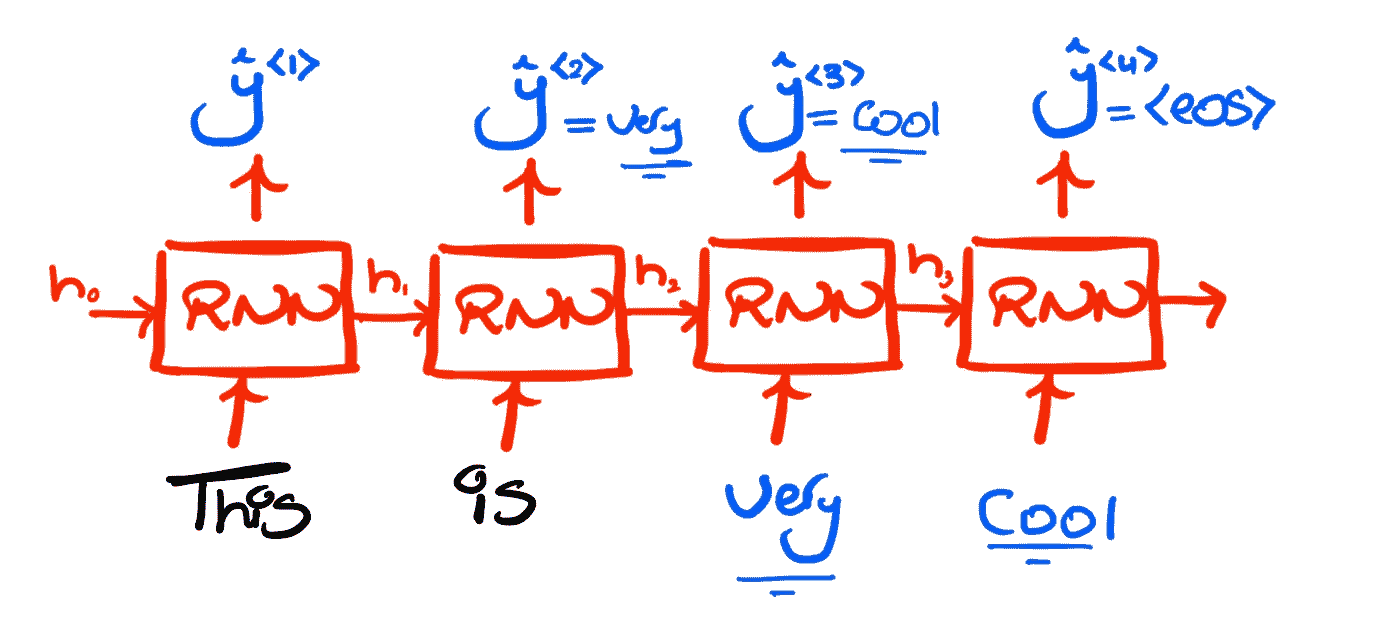 ŷ<1> ŷ<2> = very ŷ<3> = cool ŷ<4> = <eos>
h₀ RNN h₁ RNN h₂ RNN h₃ RNN
This is very cool